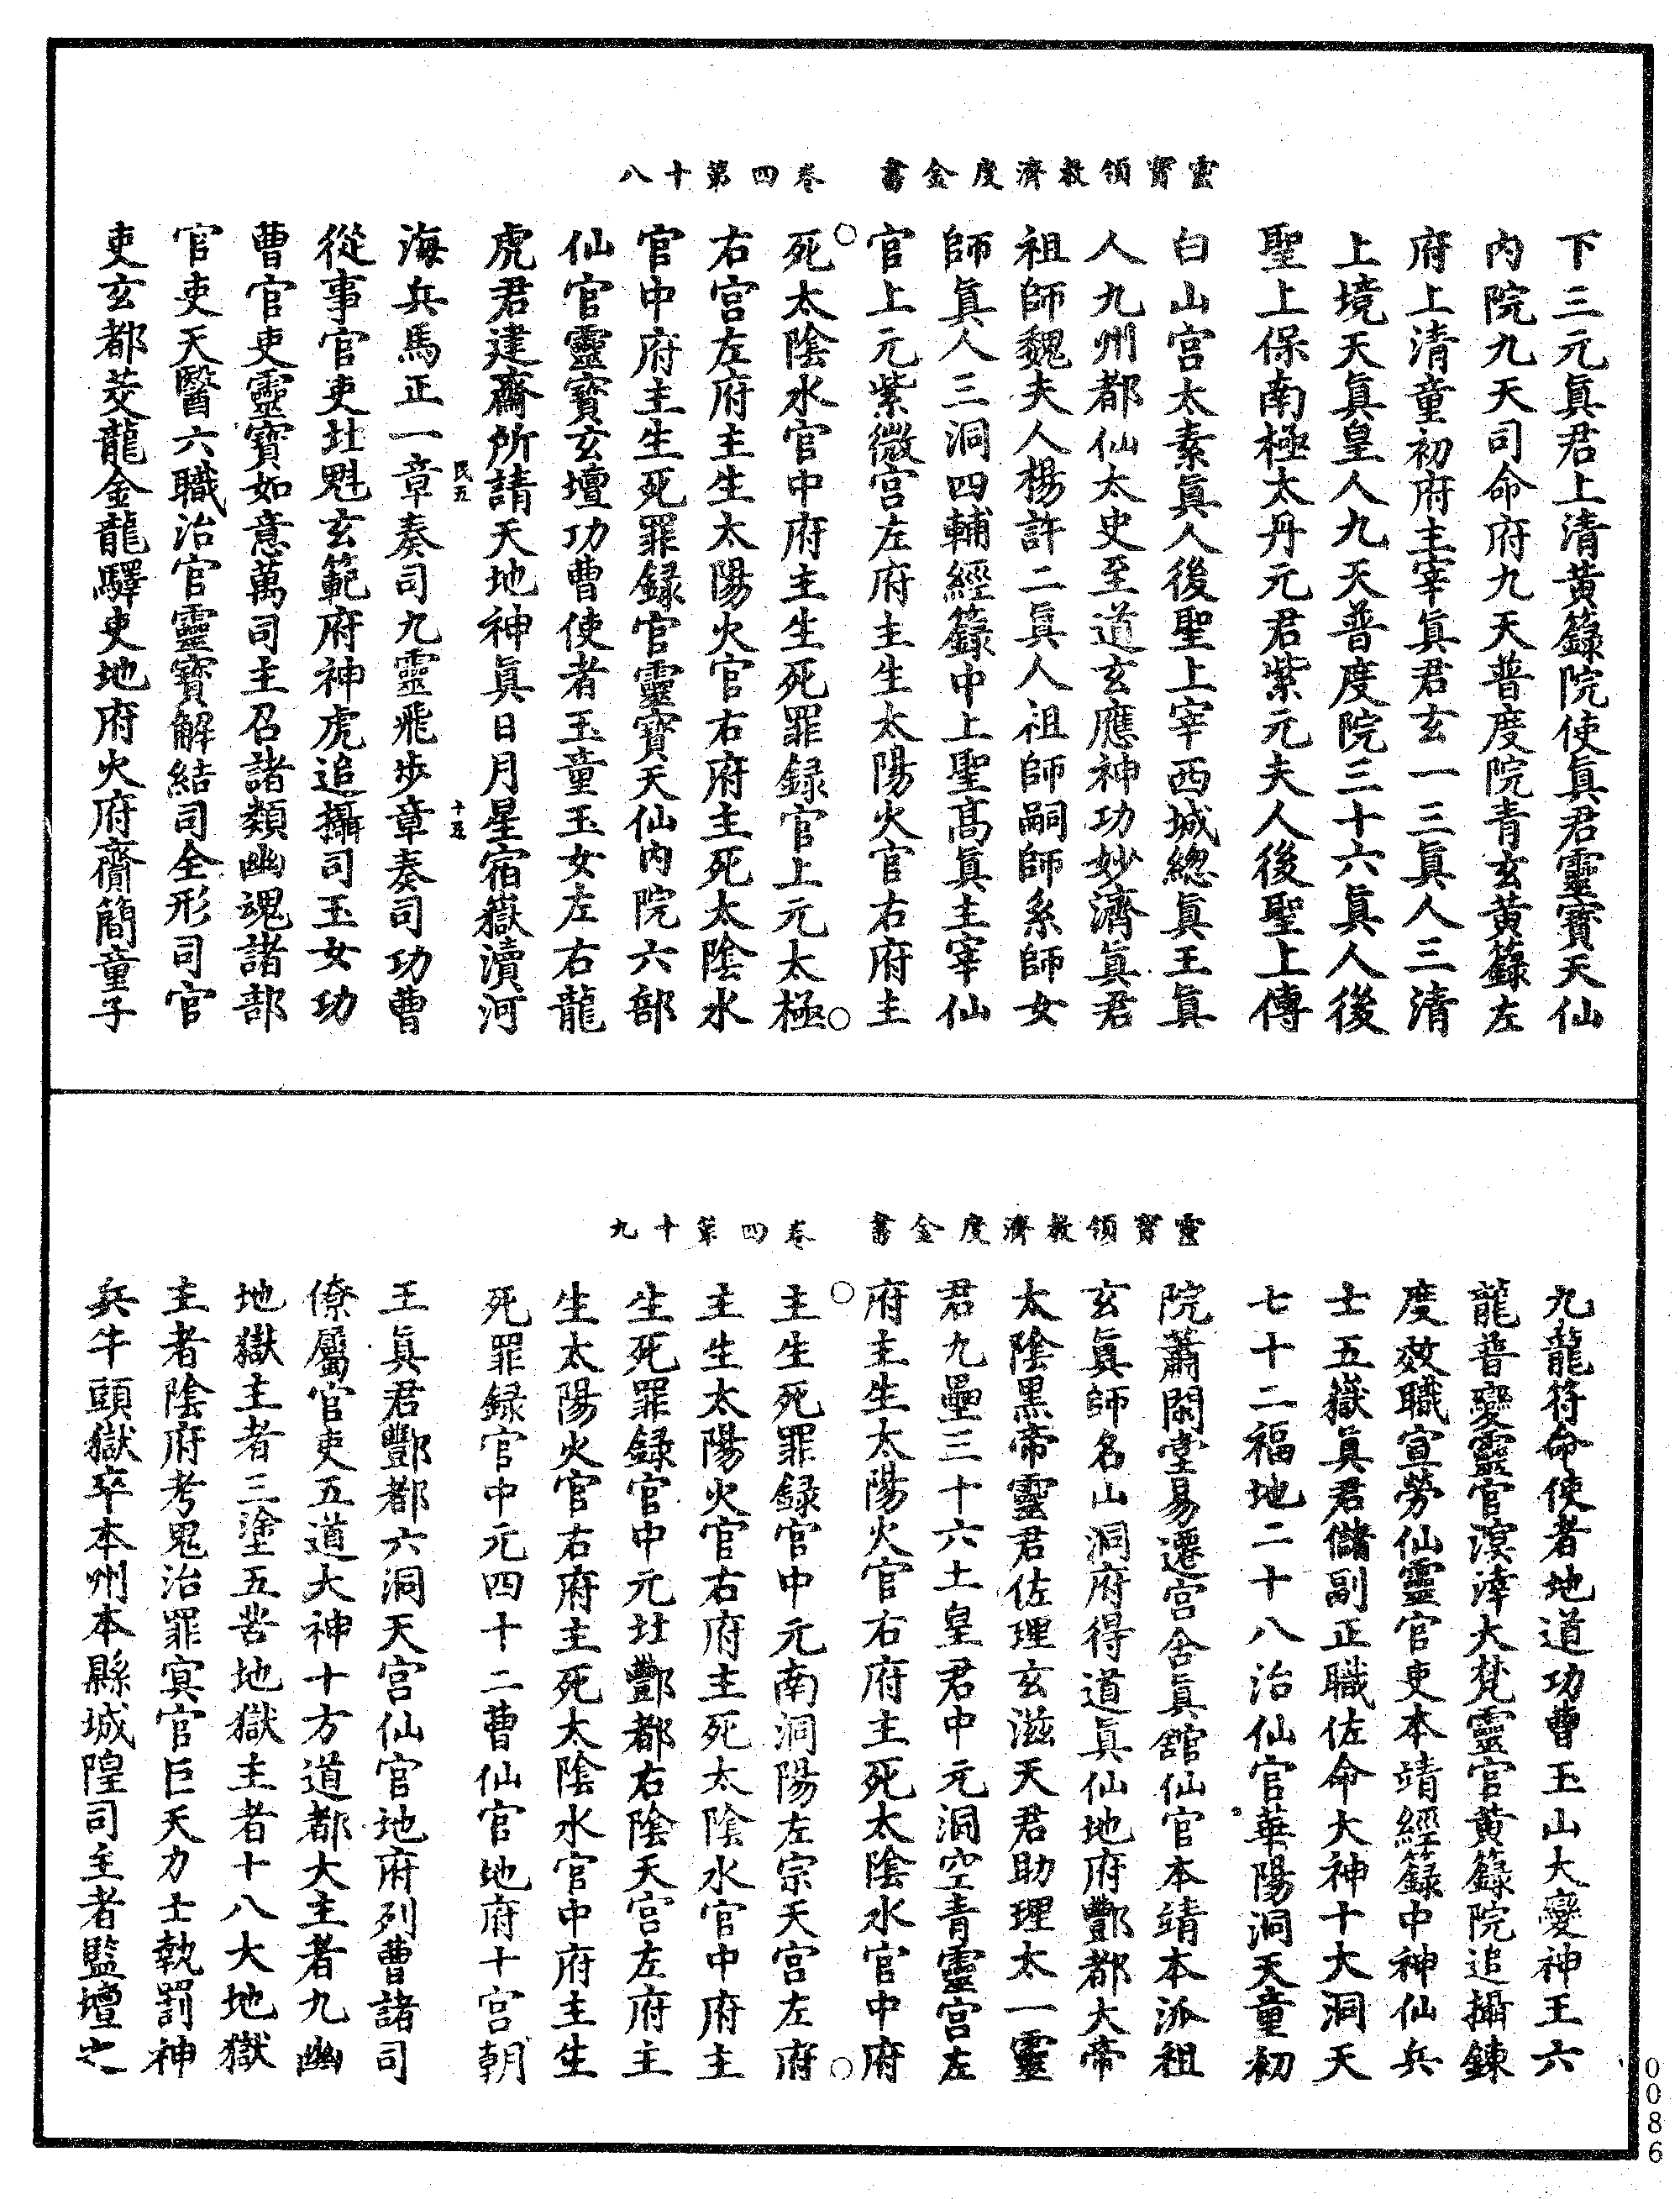 靈寶領教濟度金書　卷四第十八
下三元眞君上清黃籙院使眞君靈寶天仙
内院九天司命府九天普度院青玄黃籙左
府上清童初府主宰眞君玄一三眞人三清
上境天眞皇人九天普度院三十六眞人後
聖上保南極太丹元君紫元夫人後聖上傳
白山宮太素眞人後聖上宰西城總眞王眞
人九州都仙太史至道玄應神功妙濟眞君
祖師魏夫人楊許二眞人祖師嗣師系師女
師眞人三洞四輔經籙中上聖高眞主宰仙
官上元紫微宮左府主生太陽火官右府主
死太陰水官中府主生死罪録官上元太極
右宮左府主生太陽火官右府主死太陰水
官中府主生死罪録官靈寶天仙内院六部
仙官靈寶玄壇功曹使者玉童玉女左右龍
虎君建齋所請天地神眞日月星宿嶽瀆河
海兵馬正一章奏司九靈飛步章奏司功曹
民五　十五
從事官吏壯魁玄範府神虎追攝司玉女功
曹官吏靈寶如意萬司主召諸類幽魂諸部
官吏天醫六職治官靈寶解結司全形司官
吏玄都茭龍金龍驛吏地府火府齎簡童子
靈寶領教濟度金書　卷四第十九
九龍符命使者地道功曹玉山大變神王六
龍普變靈官溟涬大梵靈官黃籙院追攝鍊
度效職宣勞仙靈官吏本靖經籙中神仙兵
士五嶽眞君儲副正職佐命大神十大洞天
七十二福地二十八治仙官華陽洞天童初
院蕭閑堂易遷宮含眞舘仙官本靖本派祖
玄眞師名山洞府得道眞仙地府酆都大帝
太陰黑帝靈君佐理玄滋天君助理太一靈
君九壘三十六土皇君中元洞空青靈宮左
府主生太陽火官右府主死太陰水官中府
主生死罪録官中元南洞陽左宗天宮左府
主生太陽火官右府主死太陰水官中府主
生死罪録官中元壯酆都右陰天宮左府主
生太陽火官右府主死太陰水官中府主生
死罪録官中元四十二曹仙官地府十宮朝
王眞君酆都六洞天宮仙官地府列曹諸司
僚屬官吏五道大神十方道都大主者九幽
地獄主者三塗五苦地獄主者十八大地獄
主者陰府考鬼治罪冥官巨天力士執罰神
兵牛頭獄卒本州本縣城隍司主者監壇之
0086